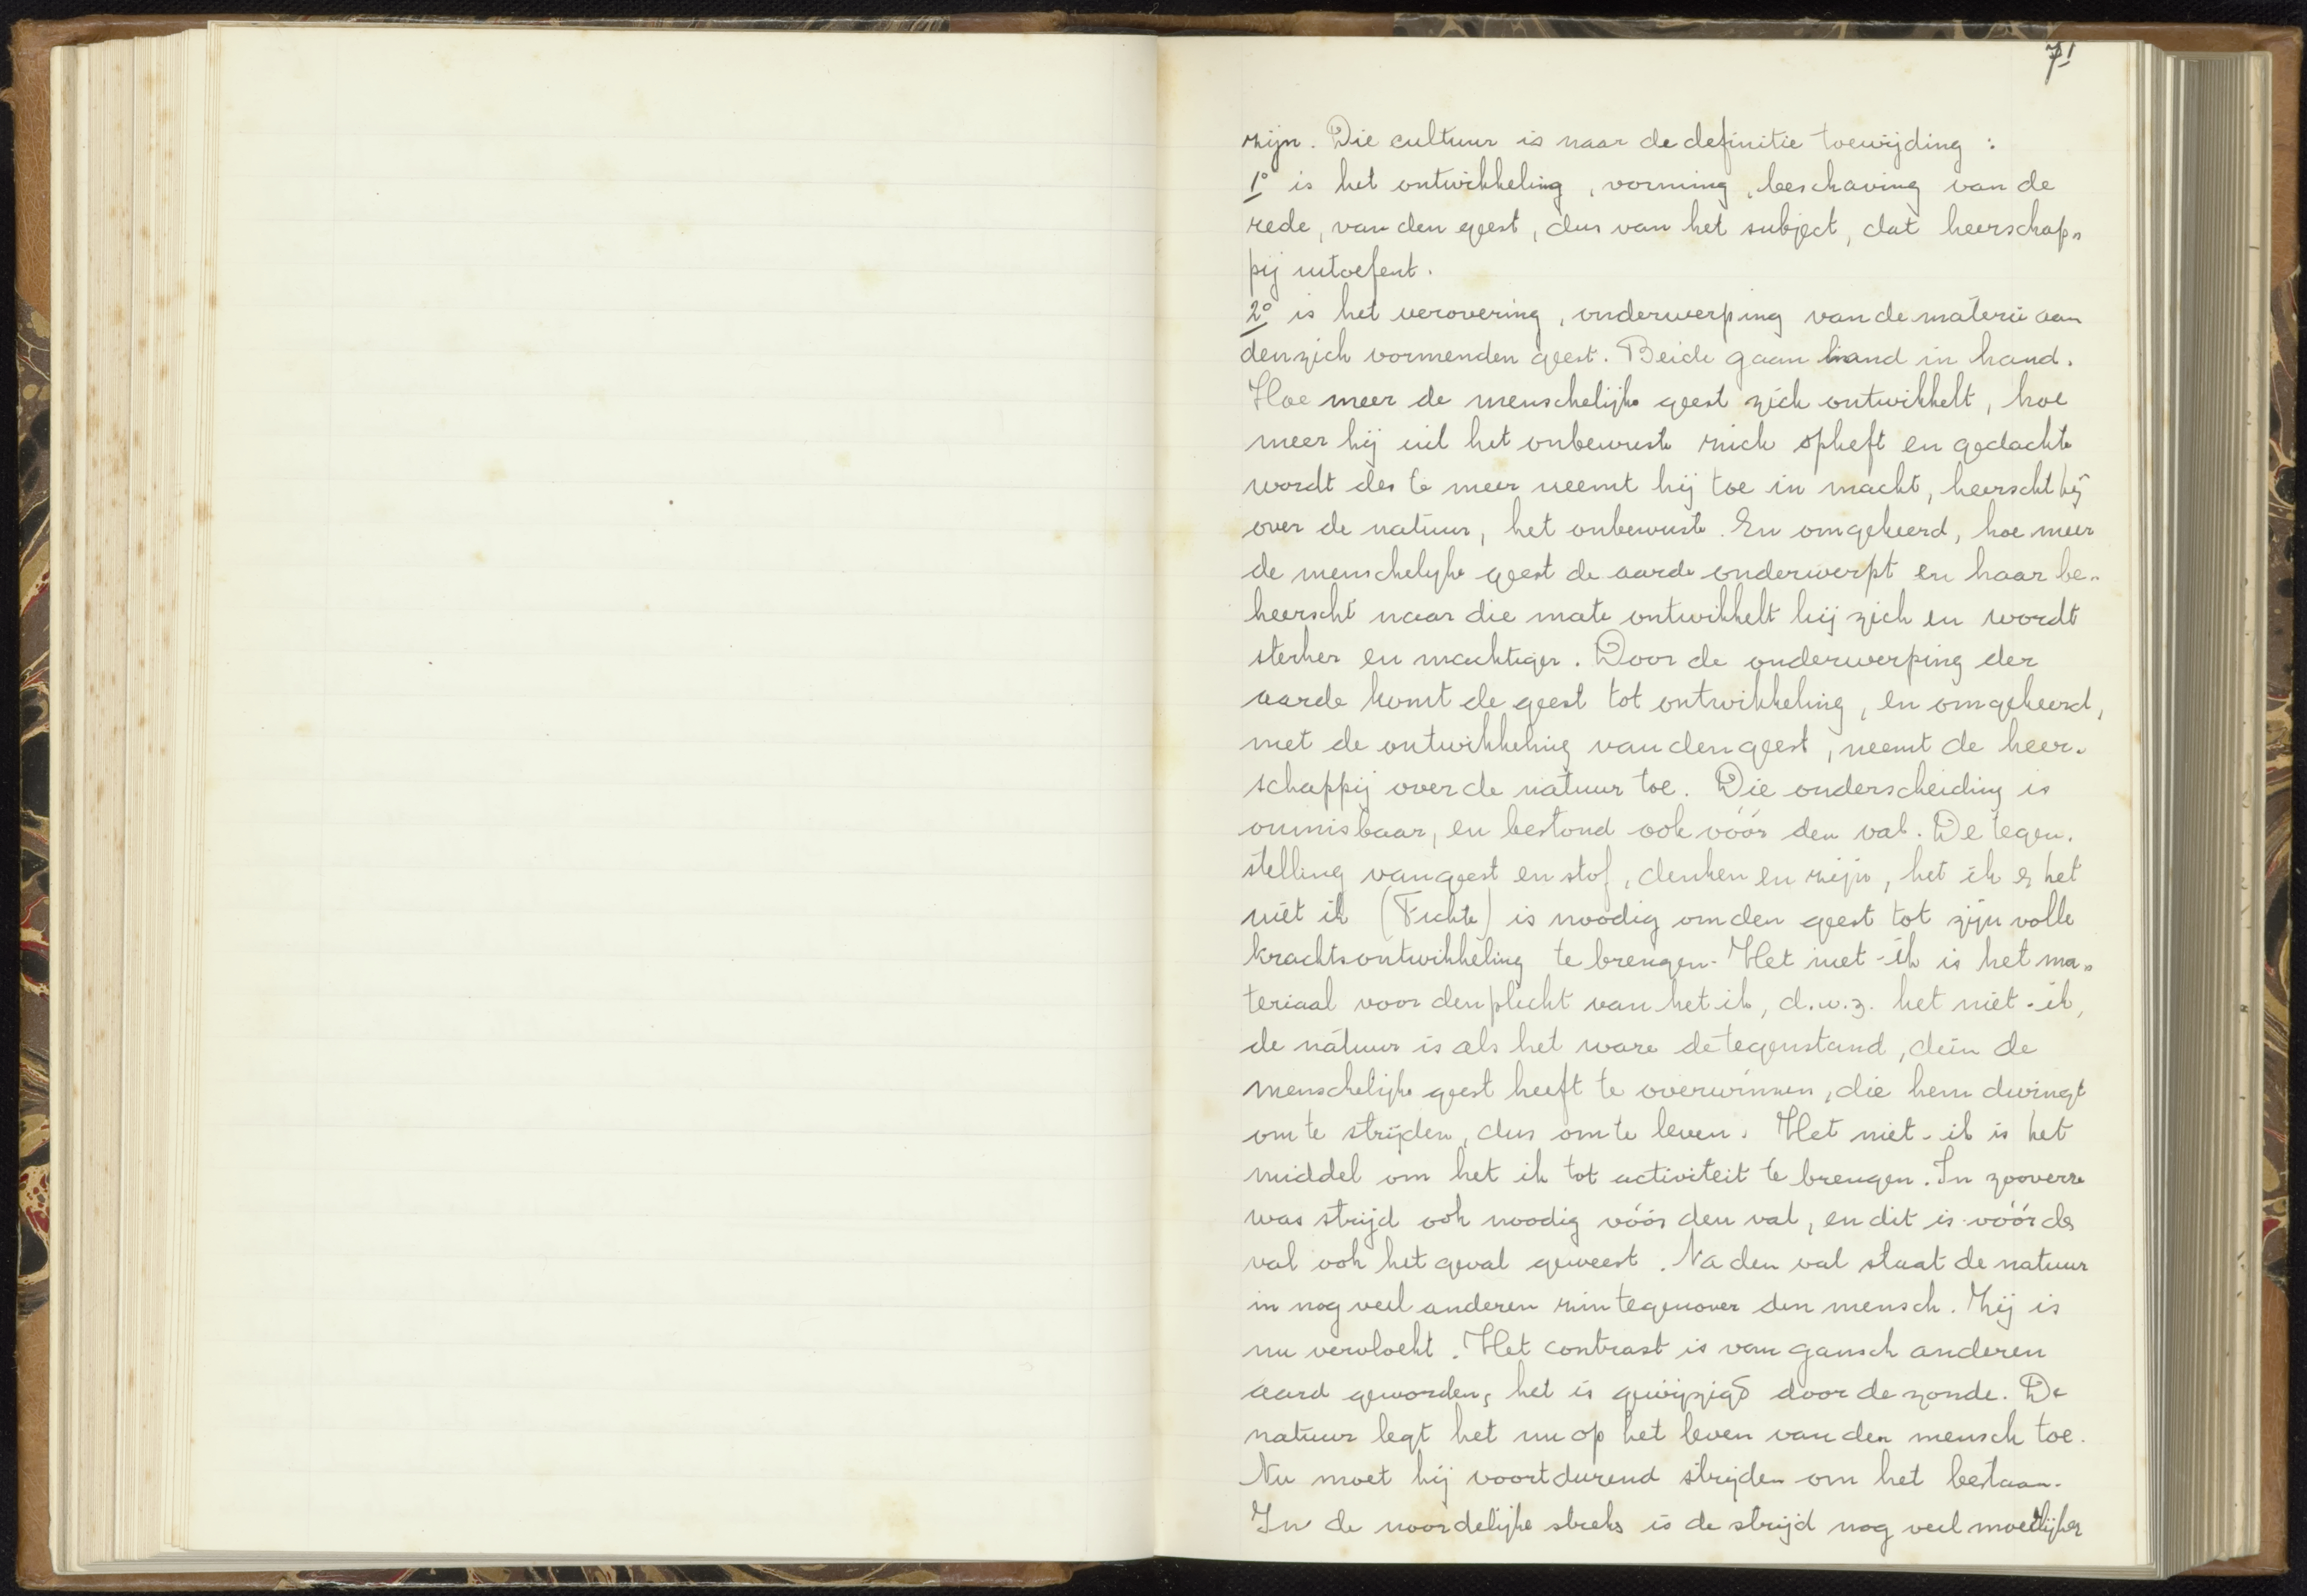 71
zijn. Die cultuur is naar de definitie toewijding :
1° is het ontwikkeling, vorming, beschaving van de
rede, van den geest, dus van het subject, dat heerschap„
pij uitoefent.
2° is het verovering, onderwerping van de materie aan
den zich vormenden geest. Beide gaan hand in hand.
Hoe meer de menschelijke geest zich ontwikkelt, hoe
meer hij uit het onbewuste zich opheft en gedachte
wordt des te meer neemt hij toe in macht, heerscht hij
over de natuur, het onbewuste. En omgekeerd, hoe meer
de menschelijke geest de aarde onderwerpt en haar be„
heerscht naar die mate ontwikkelt hij zich en wordt
sterker en machtiger. Door de onderwerping der
aarde komt de geest tot ontwikkeling, en omgekeerd,
met de ontwikkeling van den geest, neemt de heer„
schappij over de natuur toe. Die onderscheiding is
onmisbaar, en bestond ook vóór den val. De tegen„
stelling van geest en stof, denken en zijn, het ik & het
niet ik (Fichte) is noodig om den geest tot zijn volle
krachtsontwikkeling te brengen. Het niet-ik is het ma„
teriaal voor den plicht van het ik, d.w.z. het niet-ik,
de natuur is als het ware de tegenstand, dien de
menschelijke geest heeft te overwinnen, die hem dwingt
om te strijden, dus om te leven. Het niet-ik is het
middel om het ik tot activiteit te brengen. In zooverre
was strijd ook noodig vóór den val, en dit is vóór de
val ook het geval geweest. Na den val staat de natuur
in nog veel anderen zin tegenover den mensch. Zij is
nu vervloekt. Het contrast is van gansch anderen
aard geworden, het is gewijzigd door de zonde. De
natuur legt het nu op het leven van den mensch toe.
Nu moet hij voortdurend strijden om het bestaan.
In de noordelijke streken is de strijd nog veel moeilijker